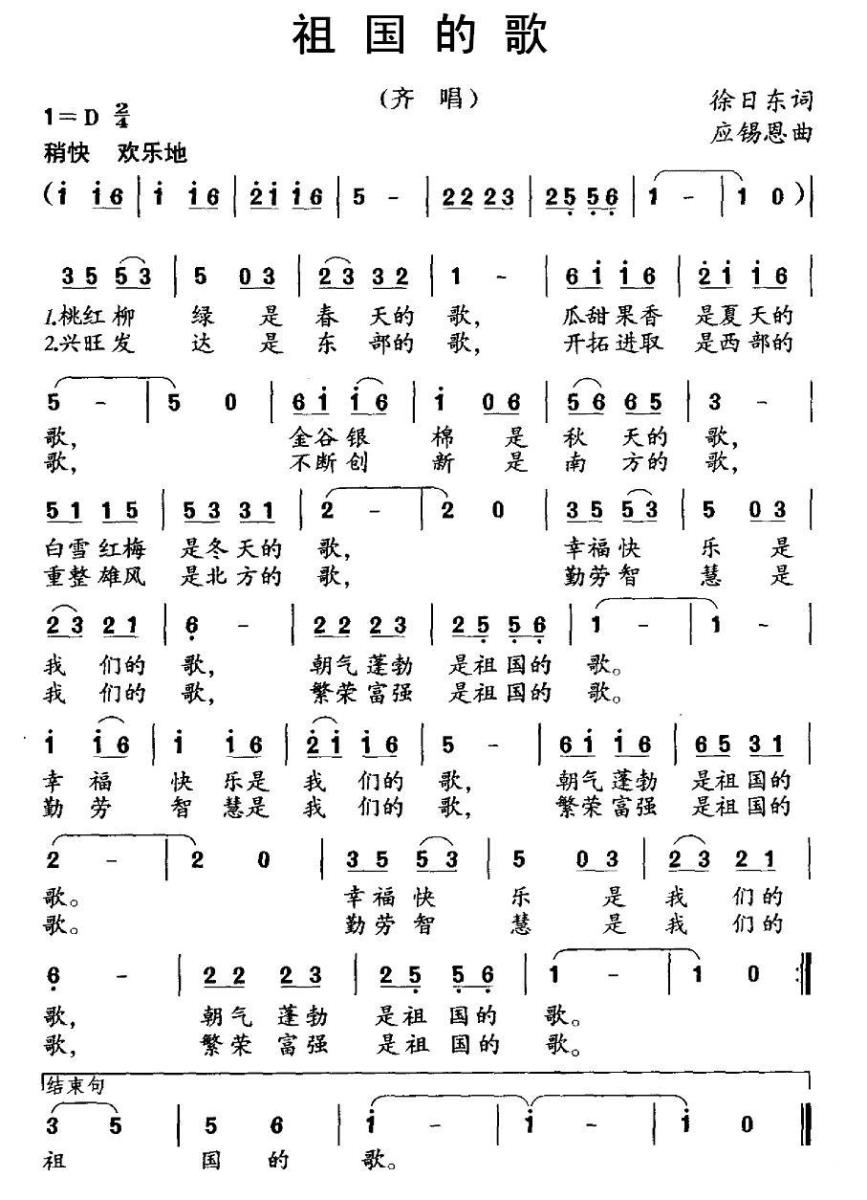 祖国的歌
(齐唱)
1=D 2/4
徐日东词
稍快 欢乐地
应锡恩曲
(i i6 | i i6 | 2̇i i6 | 5 - | 22 23 | 25̣ 5̣6̣ | 1 - | 1 0)|
35 53 | 5 03 | 23 32 | 1 - | 6i i6 | 2̇i i6
1.桃红柳 绿 是 春 天的 歌, 瓜甜果香 是夏天的
2.兴旺发 达 是 东 部的 歌, 开拓进取 是西部的
5 - | 5 0 | 6i i6 | i 06 | 56 65 | 3 - |
歌, 金谷银 棉 是 秋 天的 歌,
歌, 不断创 新 是 南 方的 歌,
51 15 | 53 31 | 2 - | 2 0 | 35 53 | 5 03 |
白雪红梅 是冬天的 歌, 幸福快 乐 是
重整雄风 是北方的 歌, 勤劳智 慧 是
23 21 | 6̣ - | 22 23 | 25̣ 5̣6̣ | 1 - | 1 - |
我 们的 歌, 朝气蓬勃 是祖国的 歌。
我 们的 歌, 繁荣富强 是祖国的 歌。
i i6 | i i6 | 2̇i i6 | 5 - | 6i i6 | 65 31 |
幸 福 快 乐是 我 们的 歌, 朝气蓬勃 是祖国的
勤 劳 智 慧是 我 们的 歌, 繁荣富强 是祖国的
2 - | 2 0 | 35 53 | 5 03 | 23 21 |
歌。 幸福快 乐 是 我 们的
歌。 勤劳智 慧 是 我 们的
6̣ - | 22 23 | 25̣ 5̣6̣ | 1 - | 1 0 :||
歌, 朝气 蓬勃 是祖 国的 歌。
歌, 繁荣 富强 是祖 国的 歌。
结束句
3 5 | 5 6 | i - | i - | i 0 ||
祖 国 的 歌。